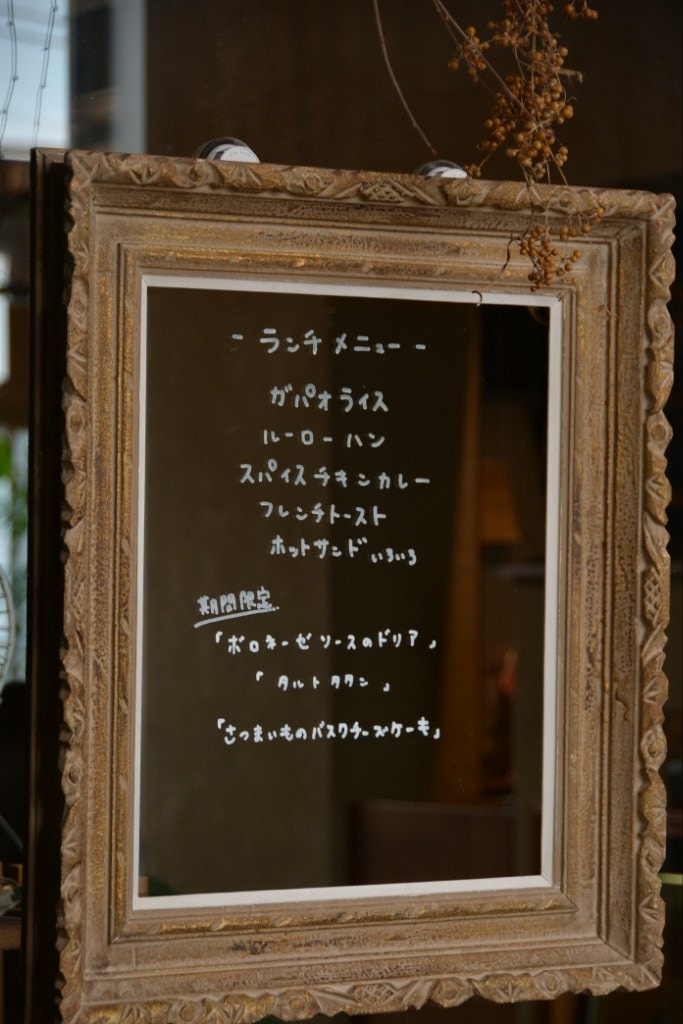 - ランチメニュー -
ガパオライス
ルーローハン
スパイスチキンカレー
フレンチトースト
ホットサンドいろいろ
期間限定
「ボロネーゼソースのドリア」
「タルトタタン」
「さつまいものバスクチーズケーキ」